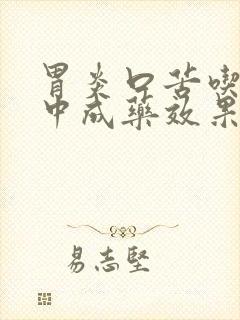 胃炎口苦喫
中成藥效果
易志堅